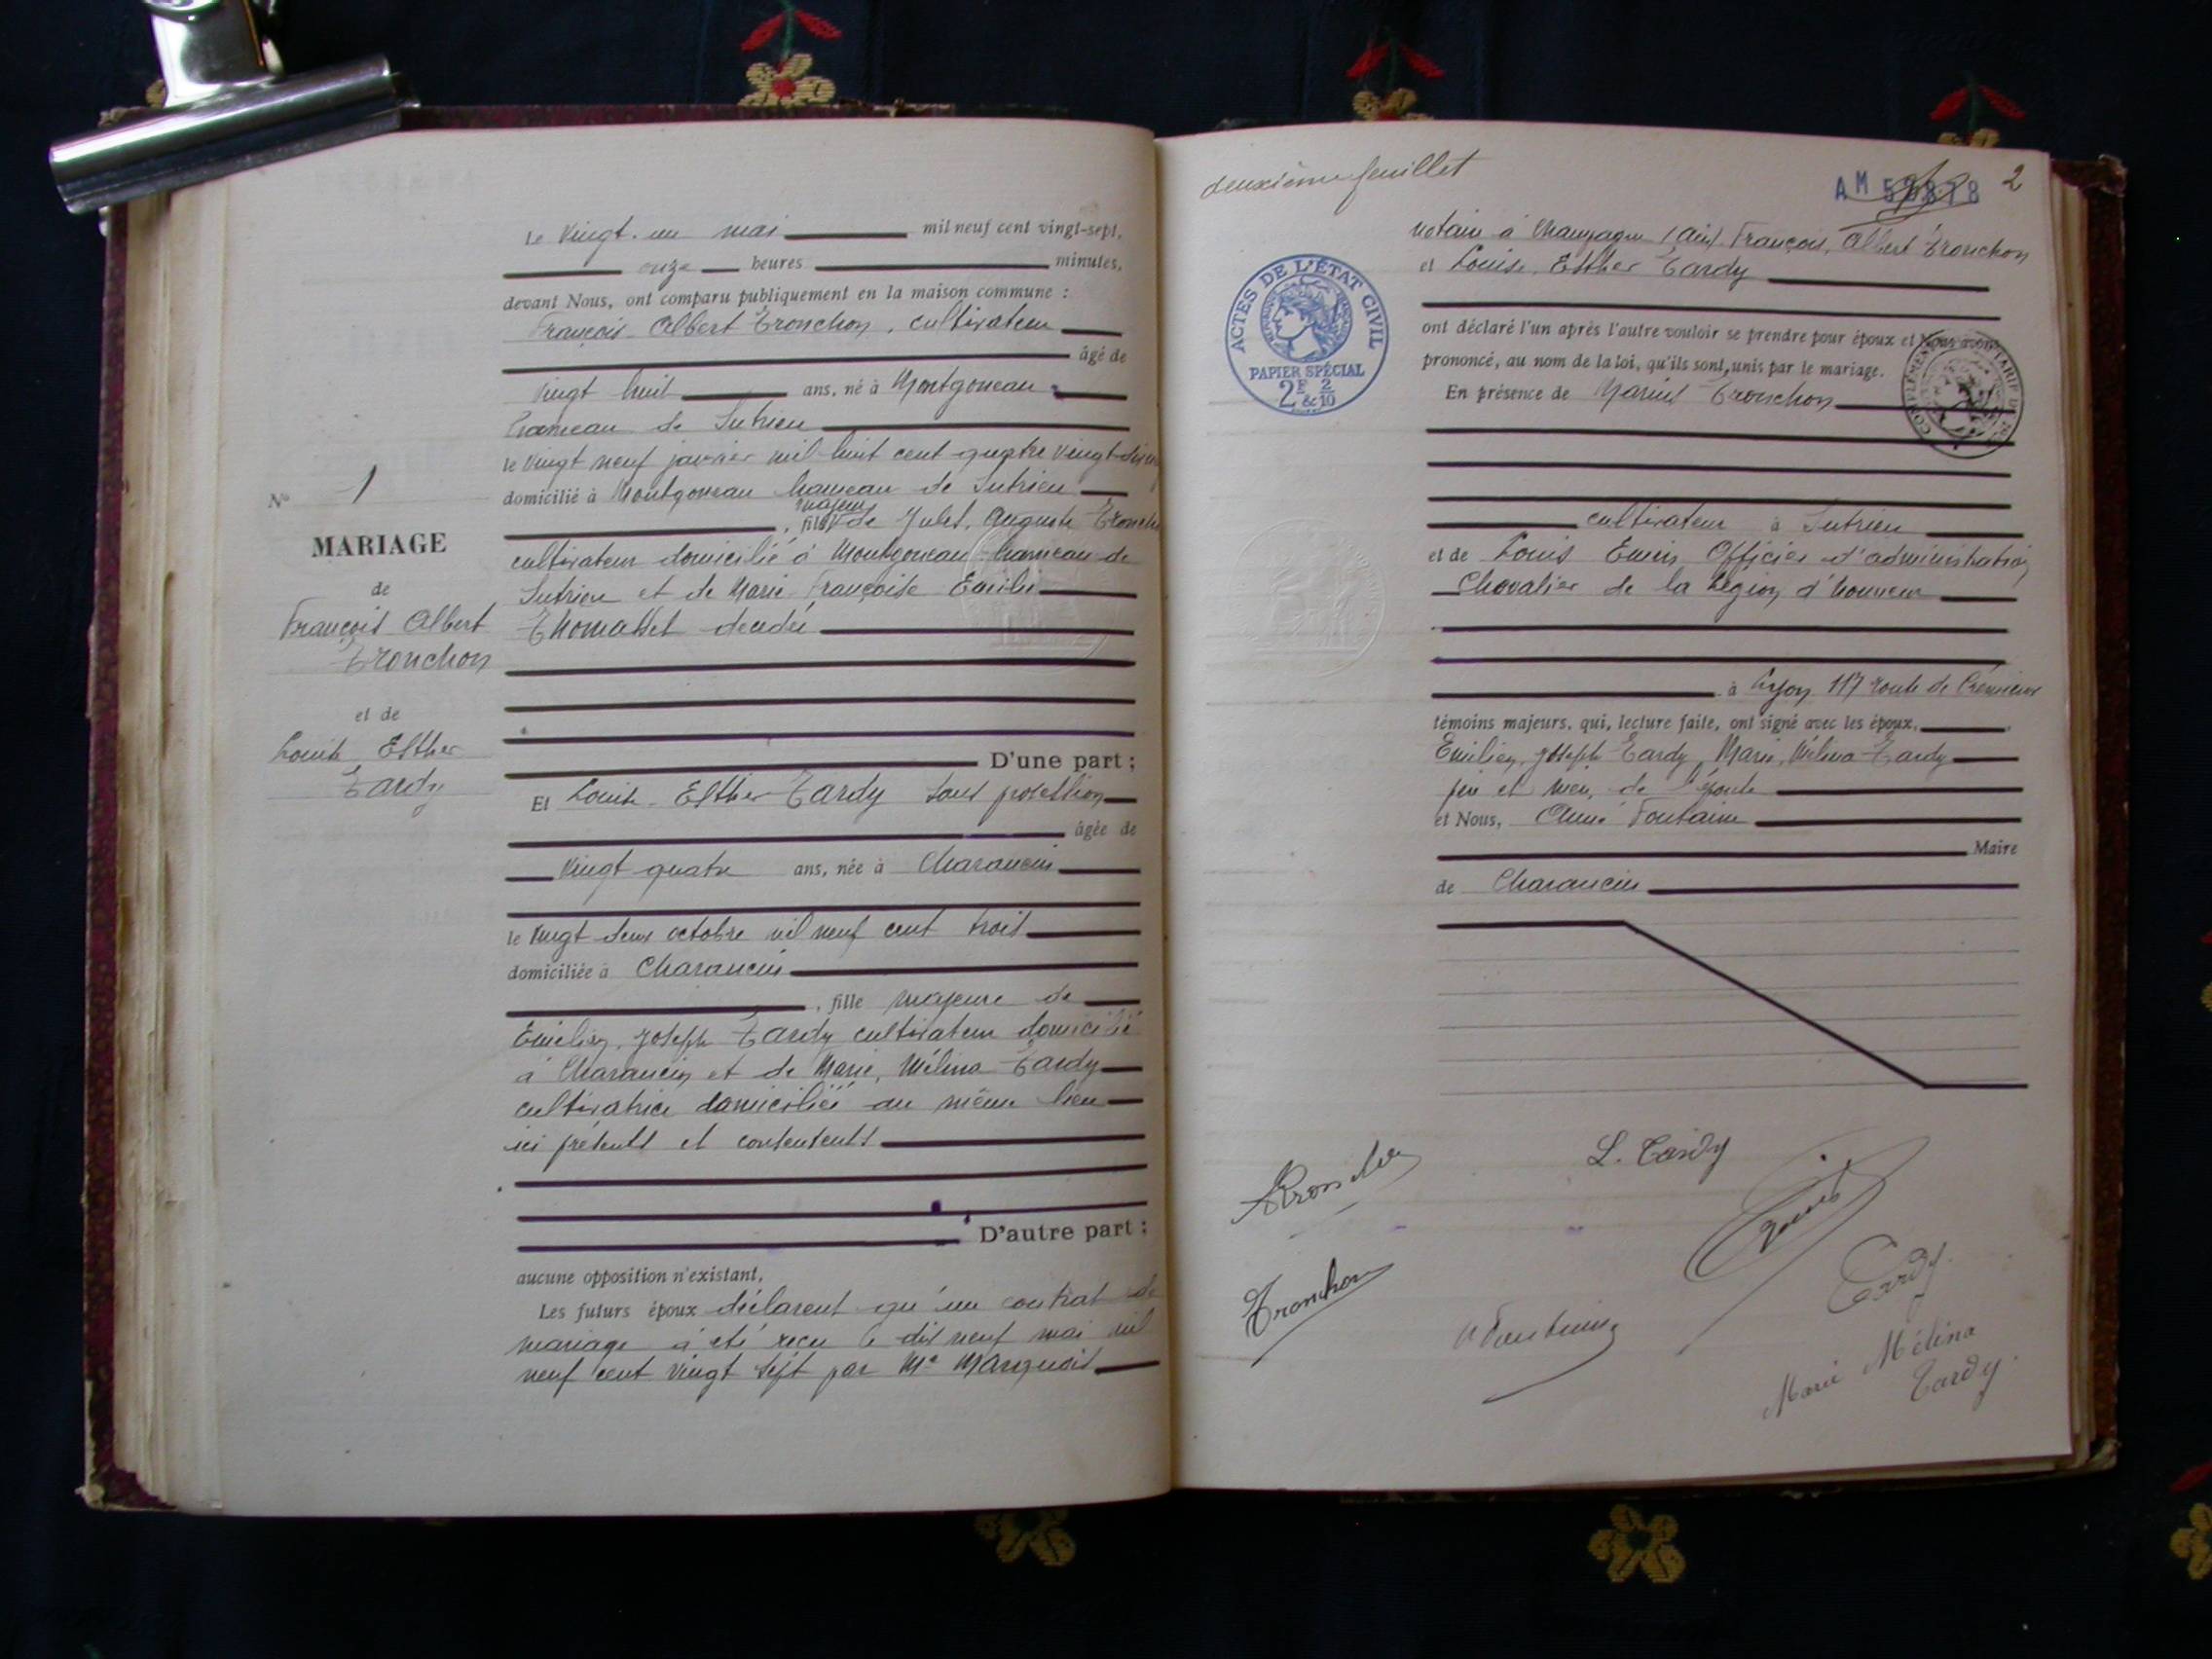 Le vingt-un mai mil neuf cent vingt-sept,
onze heures minutes,
devant Nous, ont comparu publiquement en la maison commune :
François Albert Tronchon, cultivateur
âgé de
vingt huit ans, né à Montgoneau
hameau de Sutrieu
le vingt neuf janvier mil huit cent quatre vingt-dix
domicilié à Montgoneau hameau de Sutrieu
majeur
, fils de Jules, Auguste Tronchon
cultivateur domicilié à Montgoneau hameau de
Sutrieu et de Marie Françoise Emilie
Thomasset décédée
D'une part ;
Et Louise Esther Tardy sans profession
âgée de
vingt quatre ans, née à Charancin
le vingt deux octobre mil neuf cent trois
domiciliée à Charancin
, fille majeure de
Emilien, Joseph Tardy cultivateur domicilié
à Charancin et de Marie, Mélina Tardy
cultivatrice domiciliée au même lieu
ici présents et consentents
D'autre part ;
aucune opposition n'existant,
Les futurs époux déclarent qu'un contrat de
mariage a été reçu le dix neuf mai mil
neuf cent vingt sept par Me Marquois
N° 1
MARIAGE
de
François Albert
Tronchon
et de
Louise Esther
Tardy
deuxième feuillet
AM 2
notaire à Champagne (Ain) François, Albert Tronchon
et Louise, Esther Tardy
ont déclaré l'un après l'autre vouloir se prendre pour époux et Nous avons
prononcé, au nom de la loi, qu'ils sont unis par le mariage.
En présence de Marius Tronchon
cultivateur à Sutrieu
et de Louis Officier d'administration
Chevalier de la Légion d'honneur
à Lyon 117 route de Crémieux
témoins majeurs, qui, lecture faite, ont signé avec les époux,
Emilien, Joseph Tardy, Marie, Mélina Tardy
père et mère de l'épouse
et Nous, Aimé Fontaine
Maire
de Charancin
ACTES DE L'ÉTAT CIVIL
PAPIER SPÉCIAL
2F & 2/10
ATronchon
L. Tardy
Tronchon
A Fontaine
Tardy
Marie Mélina
Tardy